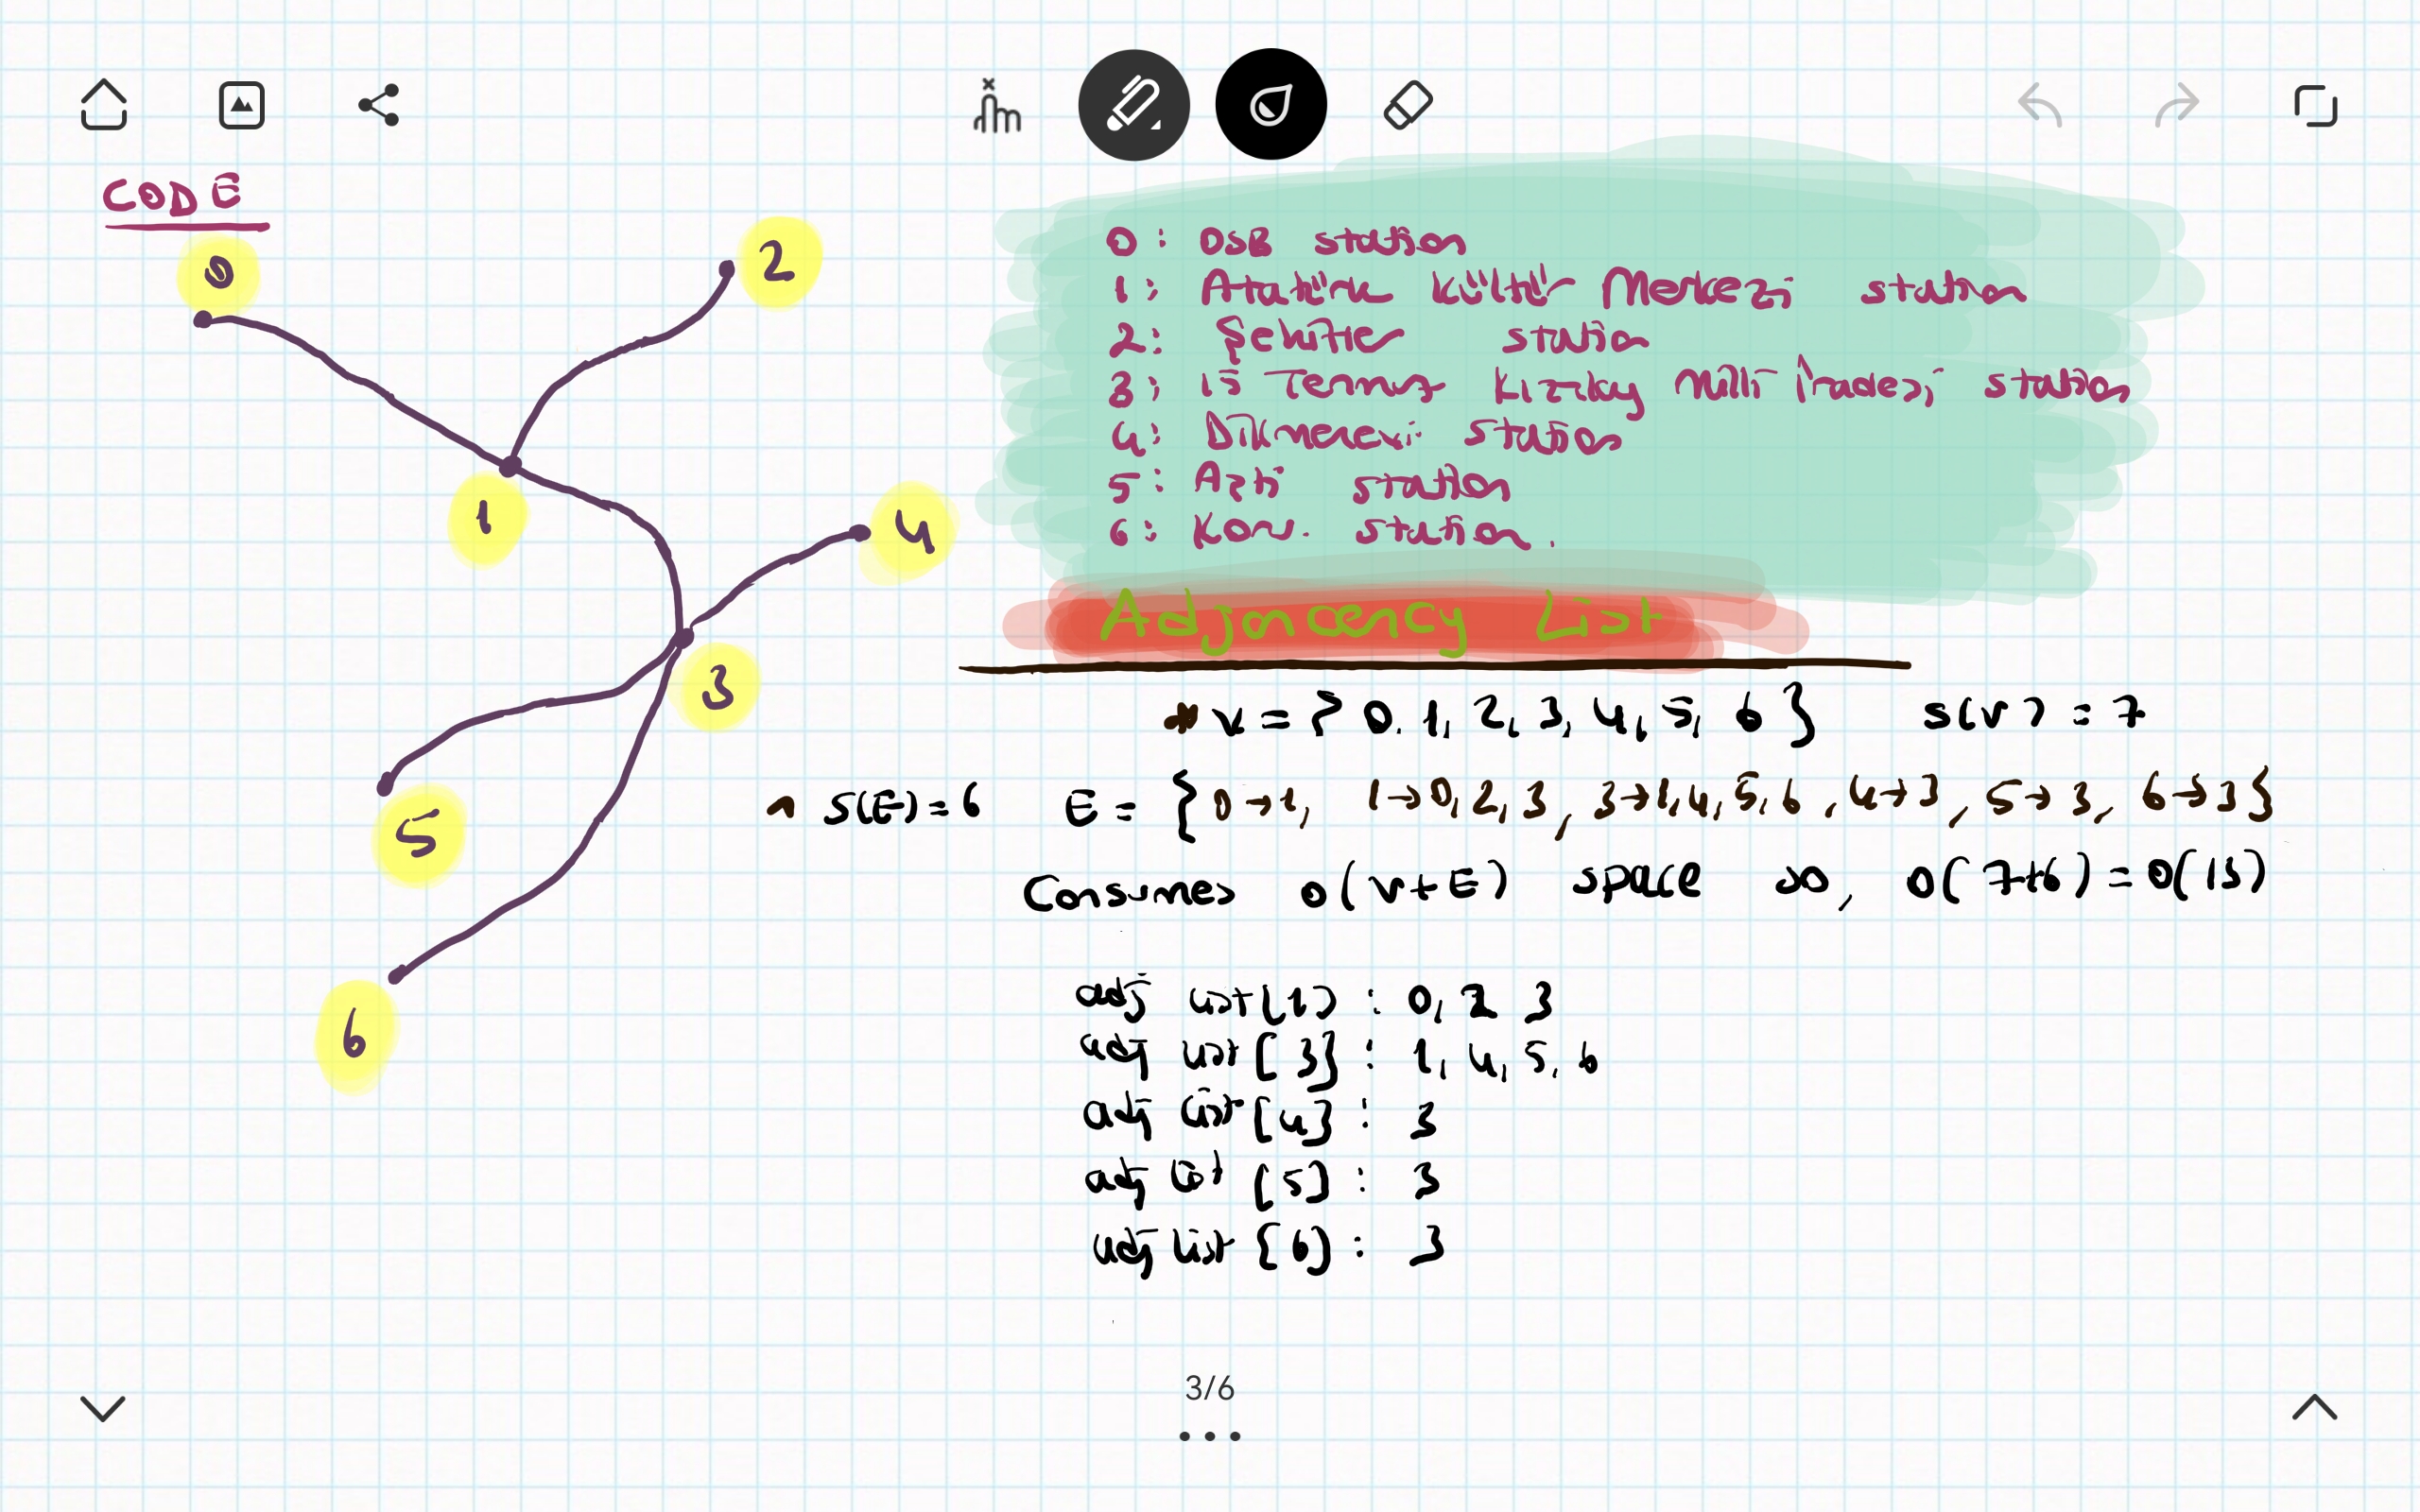 CODE
0
2
1
4
3
5
6
0: OSB station
1: Atatürk Kültür Merkezi station
2: Şehitler station
3: 15 Temmuz Kızılay Milli İradesi station
4: Dikmenevi station
5: Aşti station
6: Kon. station.
Adjacency List
* V = { 0. 1, 2, 3, 4, 5, 6 } s(V) = 7
s(E) = 6 E = { 0→1, 1→0, 2, 3, 3→1, 4, 5, 6, 4→3, 5→3, 6→3}
Consumes O(V+E) space so, O(7+6) = O(13)
adj list[1] : 0, 2 3
adj list [3] : 1, 4, 5, 6
adj list [4] : 3
adj list [5] : 3
adj list [6] : 3
3/6